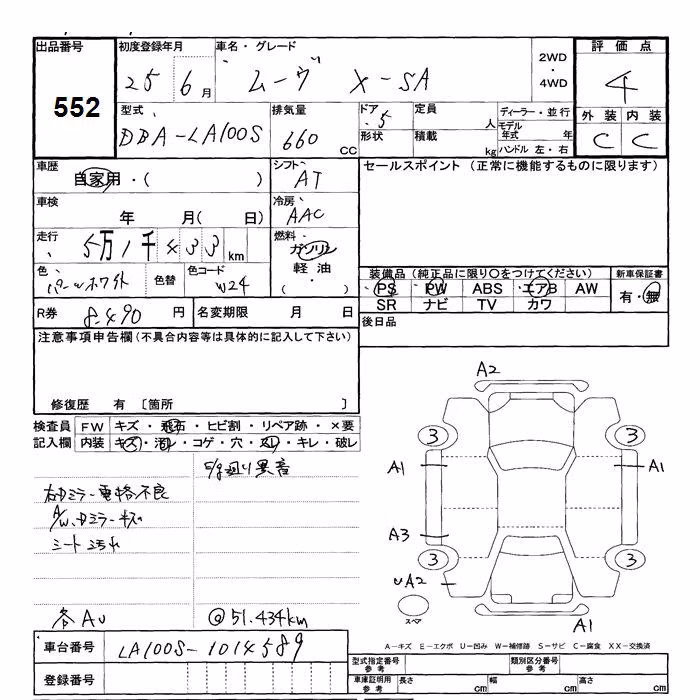 出品番号 初度登録年月 車名・グレード 2WD・4WD 評価点
552 25 6月 ムーヴ X-SA 4
型式 排気量 ドア 定員 ディーラー・並行 外装 内装
DBA-LA100S 660 CC 5 人 モデル年式 年 C C
形状 積載 kg ハンドル 左・右
車歴 自家用・( ) シフト AT セールスポイント (正常に機能するものに限ります)
車検 年 月( 日) 冷房 AAC
走行 5万1千433km 燃料 ガソリン 軽油 ( )
色 パールホワイト 色替 色コード W24 装備品 (純正品に限り○をつけてください) 新車保証書
PS PW ABS エアB AW 有・無
SR ナビ TV カワ
R券 8,490 円 名変期限 月 日 後日品
注意事項申告欄(不具合内容等は具体的に記入して下さい)
修復歴 有 〔箇所 〕
検査員 FW キズ・飛石・ヒビ割・リペア跡・×要
記入欄 内装 キズ・汚レ・コゲ・穴・スレ・キレ・破レ
F/g廻り異音
右ドミラー電格不良
A/W、ドミラーキズ
シート汚れ
各AU @51.434km
A2
3 3
A1 A1
A3
3 3
UA2
スペア A1
A-キズ E-エクボ U-凹み W-補修跡 S-サビ C-腐食 XX-交換済
車台番号 LA100S-1014589
型式指定番号 参考 類別区分番号 参考
登録番号 車庫証明用 参考 長さ cm 幅 cm 高さ cm